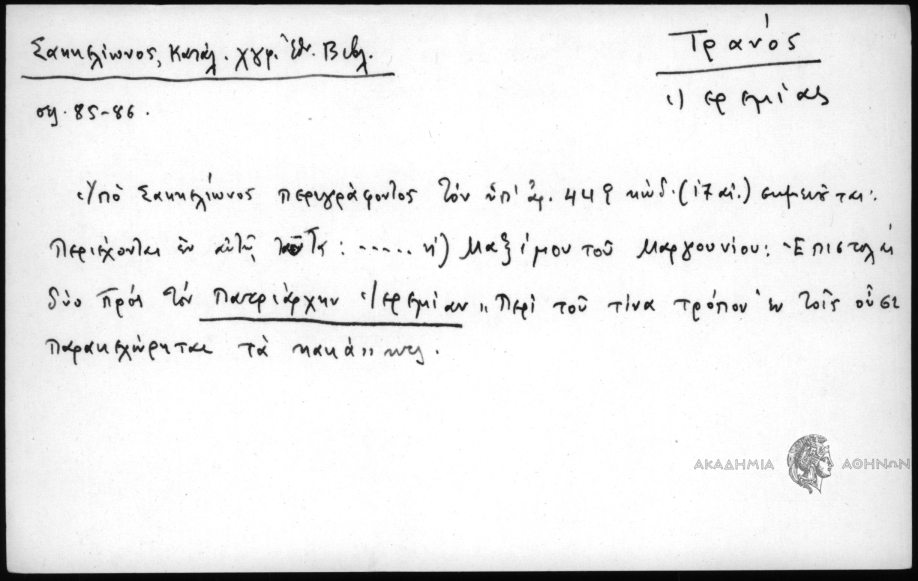 Σακκελίωνος, Κατάλ. χγρ. Ἐθν. Βιβλ.
Τρανός
Ἱερεμίας
σελ. 85-86.
Ὑπὸ Σακκελίωνος περιγράφοντος τὸν ὑπ' ἀρ. 449 κώδ. (17 αἰ.) σημειοῦται:
Περιέχονται ἐν αὐτῷ ταῦτα: ...... η) Μαξίμου τοῦ Μαργουνίου: Ἐπιστολαὶ
δύο πρὸς τὸν Πατριάρχην Ἱερεμίαν "Περὶ τοῦ τίνα τρόπον ἐν τοῖς οὖσι
παρακεχώρηται τὰ κακά" κτλ.
ΑΚΑΔΗΜΙΑ ΑΘΗΝΩΝ